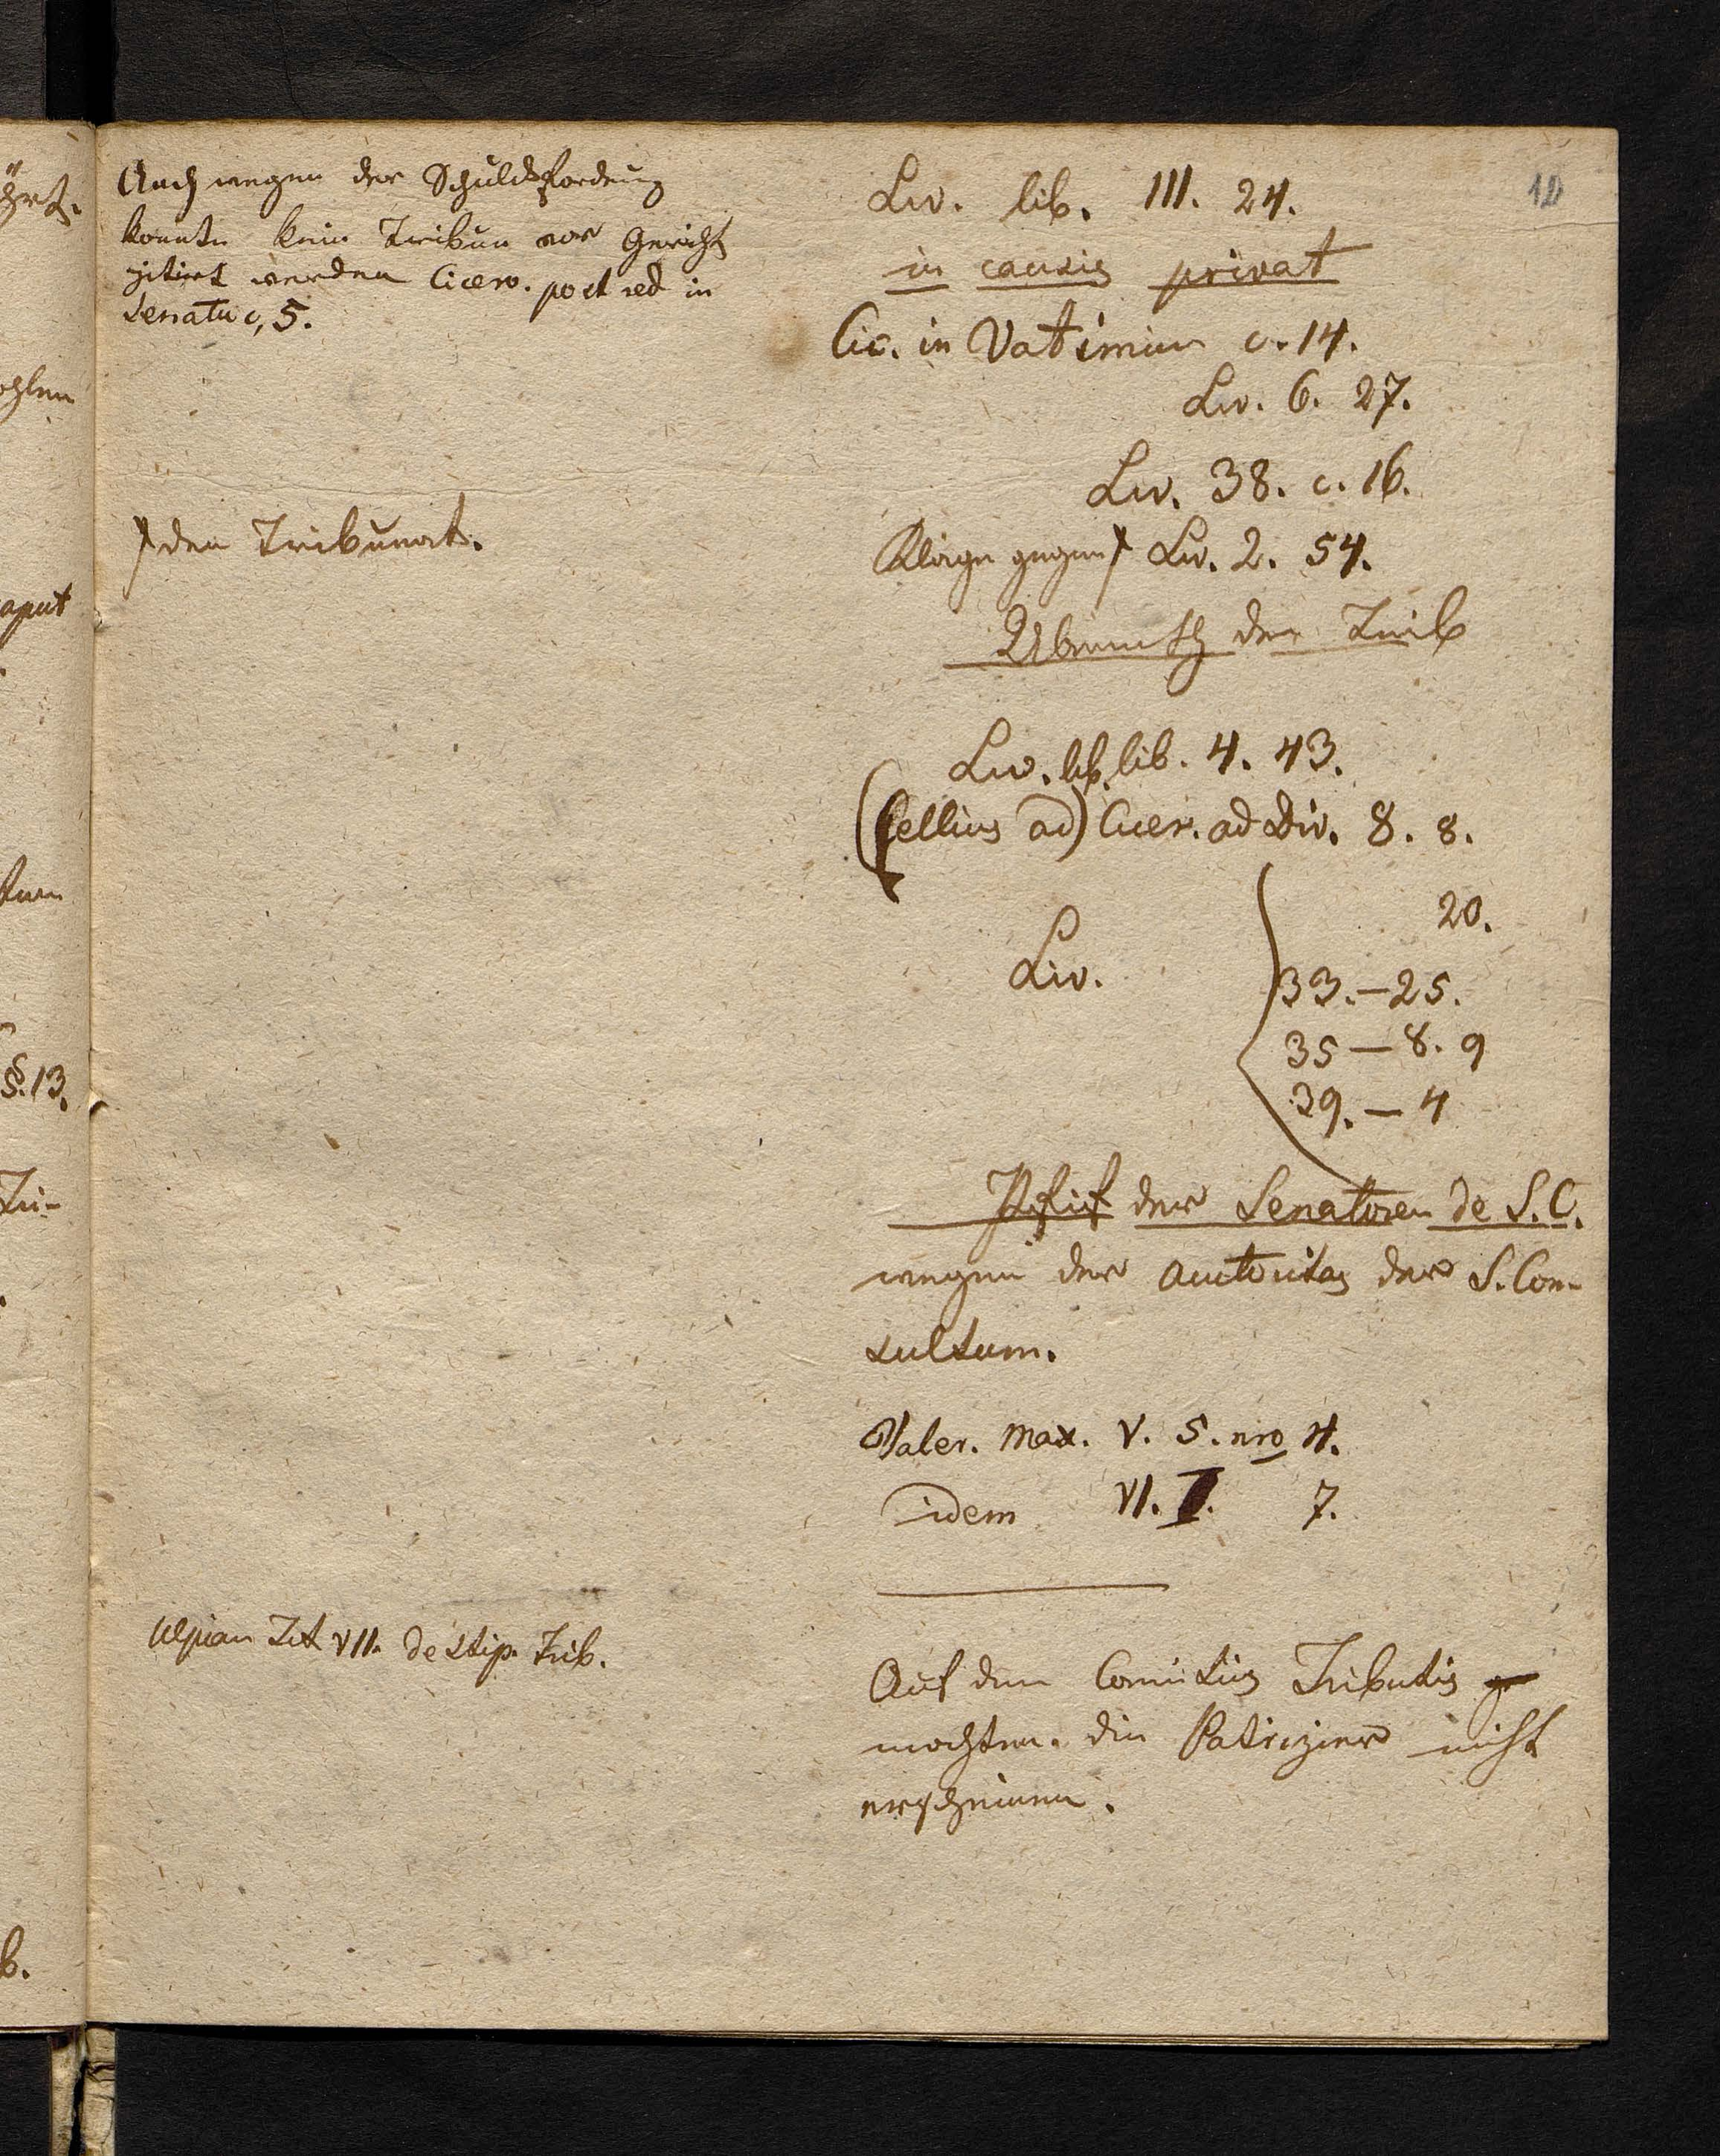 Auch wegen der Schuldsforderung
konnte kein Tribun vor Gericht
zitirt werden Cicero. post red in
Senatu c, 5.
den Tribunat.
Ulpian Tit VII. de Stip. Trib.
10
Liv. lib. III. 24.
in causis privat
Cic. in Vatinium c. 14.
Liv. 6. 27.
Liv. 38. c. 16.
Klage gegen Liv. 2. 54.
der Trib
Liv. lib. lib. 4. 43.
(Cellius ad) Cicer. ad Div. 8. 8.
20.
Liv. 33. — 25.
35 — 8. 9
39. — 4
der Senatoren de S. C.
wegen der Auctoritas der S. Con-
sultum.
Valer. Max. V. 5. nro 4.
idem VI. I. 7.
Auf den Comitiis Tributis
mochten die Patrizier nicht
erscheinen.